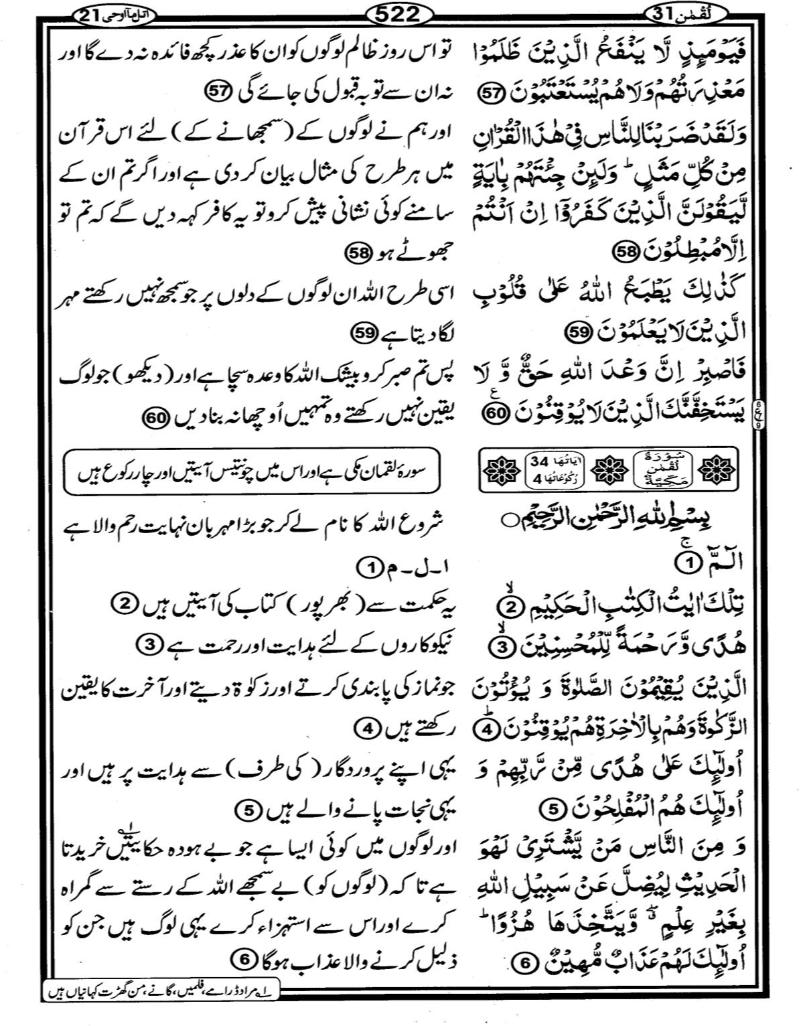 لُقْمٰن 31
522
اتل ما اوحی 21
فَيَوْمَئِذٍ لَّا يَنْفَعُ الَّذِيْنَ ظَلَمُوْا
مَعْذِرَتُهُمْ وَلَا هُمْ يُسْتَعْتَبُوْنَ 57
وَلَقَدْ ضَرَبْنَا لِلنَّاسِ فِيْ هٰذَا الْقُرْاٰنِ
مِنْ كُلِّ مَثَلٍ ؕ وَلَىِٕنْ جِئْتَهُمْ بِاٰيَةٍ
لَّيَقُوْلَنَّ الَّذِيْنَ كَفَرُوْۤا اِنْ اَنْتُمْ
اِلَّا مُبْطِلُوْنَ 58
كَذٰلِكَ يَطْبَعُ اللّٰهُ عَلٰى قُلُوْبِ
الَّذِيْنَ لَا يَعْلَمُوْنَ 59
فَاصْبِرْ اِنَّ وَعْدَ اللّٰهِ حَقٌّ وَّ لَا
يَسْتَخِفَّنَّكَ الَّذِيْنَ لَا يُوْقِنُوْنَ 60
تو اس روز ظالم لوگوں کو ان کا عذر کچھ فائدہ نہ دے گا اور
نہ ان سے توبہ قبول کی جائے گی 57
اور ہم نے لوگوں کے (سمجھانے کے) لئے اس قرآن
میں ہر طرح کی مثال بیان کر دی ہے اور اگر تم ان کے
سامنے کوئی نشانی پیش کرو تو یہ کافر کہہ دیں گے کہ تم تو
جھوٹے ہو 58
اسی طرح اللہ ان لوگوں کے دلوں پر جو سمجھ نہیں رکھتے مہر
لگا دیتا ہے 59
پس تم صبر کرو بیشک اللہ کا وعدہ سچا ہے اور (دیکھو) جو لوگ
یقین نہیں رکھتے وہ تمہیں اُوچھا نہ بنا دیں 60
سُوْرَةُ لُقْمٰن مَكِّيَّةٌ
اٰيَاتُهَا 34
رُكُوْعَاتُهَا 4
سورۂ لقمان مکی ہے اور اس میں چونتیس آیتیں اور چار رکوع ہیں
بِسْمِ اللّٰهِ الرَّحْمٰنِ الرَّحِيْمِ
الٓمّٓ 1
تِلْكَ اٰيٰتُ الْكِتٰبِ الْحَكِيْمِ 2
هُدًى وَّرَحْمَةً لِّلْمُحْسِنِيْنَ 3
الَّذِيْنَ يُقِيْمُوْنَ الصَّلٰوةَ وَ يُؤْتُوْنَ
الزَّكٰوةَ وَهُمْ بِالْاٰخِرَةِ هُمْ يُوْقِنُوْنَ 4
اُولٰٓىِٕكَ عَلٰى هُدًى مِّنْ رَّبِّهِمْ وَ
اُولٰٓىِٕكَ هُمُ الْمُفْلِحُوْنَ 5
وَ مِنَ النَّاسِ مَنْ يَّشْتَرِيْ لَهْوَ
الْحَدِيْثِ لِيُضِلَّ عَنْ سَبِيْلِ اللّٰهِ
بِغَيْرِ عِلْمٍ ۖۗ وَّيَتَّخِذَهَا هُزُوًا ؕ
اُولٰٓىِٕكَ لَهُمْ عَذَابٌ مُّهِيْنٌ 6
شروع اللہ کا نام لے کر جو بڑا مہربان نہایت رحم والا ہے
ا۔ل۔م 1
یہ حکمت سے (بھرپور) کتاب کی آیتیں ہیں 2
نیکوکاروں کے لئے ہدایت اور رحمت ہے 3
جو نماز کی پابندی کرتے اور زکوٰۃ دیتے اور آخرت کا یقین
رکھتے ہیں 4
یہی اپنے پروردگار (کی طرف) سے ہدایت پر ہیں اور
یہی نجات پانے والے ہیں 5
اور لوگوں میں کوئی ایسا ہے جو بے ہودہ حکایتیں خریدتا
ہے تا کہ (لوگوں کو) بے سمجھے اللہ کے رستے سے گمراہ
کرے اور اس سے استہزاء کرے یہی لوگ ہیں جن کو
ذلیل کرنے والا عذاب ہوگا 6
۱؎ مراد ڈرامے، فلمیں، گانے، من گھڑت کہانیاں ہیں